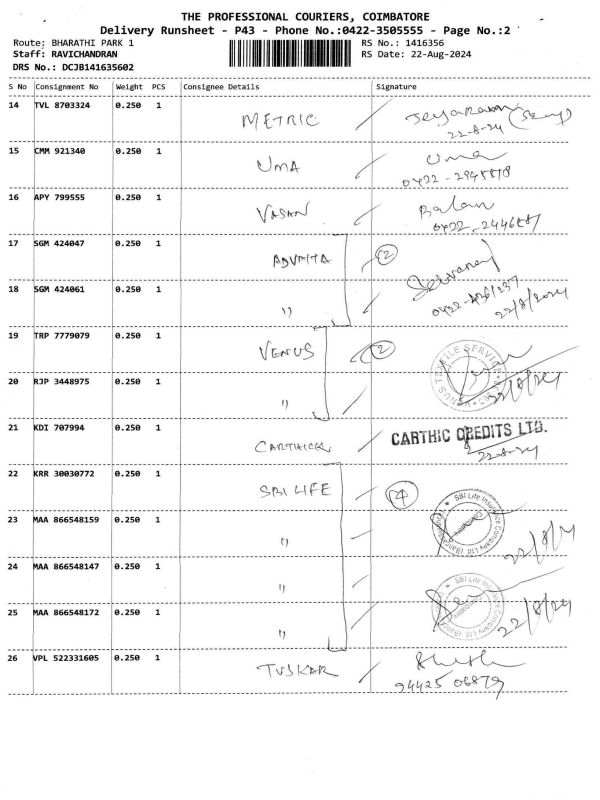 THE PROFESSIONAL COURIERS, COIMBATORE
Delivery Runsheet - P43 - Phone No.:0422-3505555 - Page No.:2
Route: BHARATHI PARK 1 RS No.: 1416356
Staff: RAVICHANDRAN RS Date: 22-Aug-2024
DRS No.: DCJB141635602
S No Consignment No Weight PCS Consignee Details Signature
14 TVL 8703324 0.250 1 METRIC Jeyaraman
22-8-24
15 CMM 921340 0.250 1 UMA Uma
0422-
16 APY 799555 0.250 1 VASAN Balan
17 SGM 424047 0.250 1 ADVAITA 2
18 SGM 424061 0.250 1 " 22/8/2024
19 TRP 7779079 0.250 1 VENUS 2 VENUS TEXTILE SERVICE
20 RJP 3448975 0.250 1 " 22/8/24
21 KDI 707994 0.250 1 CARTHICK CARTHIC CREDITS LTD.
22-8-24
22 KRR 30030772 0.250 1 SBI LIFE 4 SBI Life Insurance Company Ltd.
23 MAA 866548159 0.250 1 " 22/8/24
24 MAA 866548147 0.250 1 " SBI Life Insurance Company Ltd.
25 MAA 866548172 0.250 1 " 22/8/24
26 VPL 522331605 0.250 1 TUSKAR
94425 06879